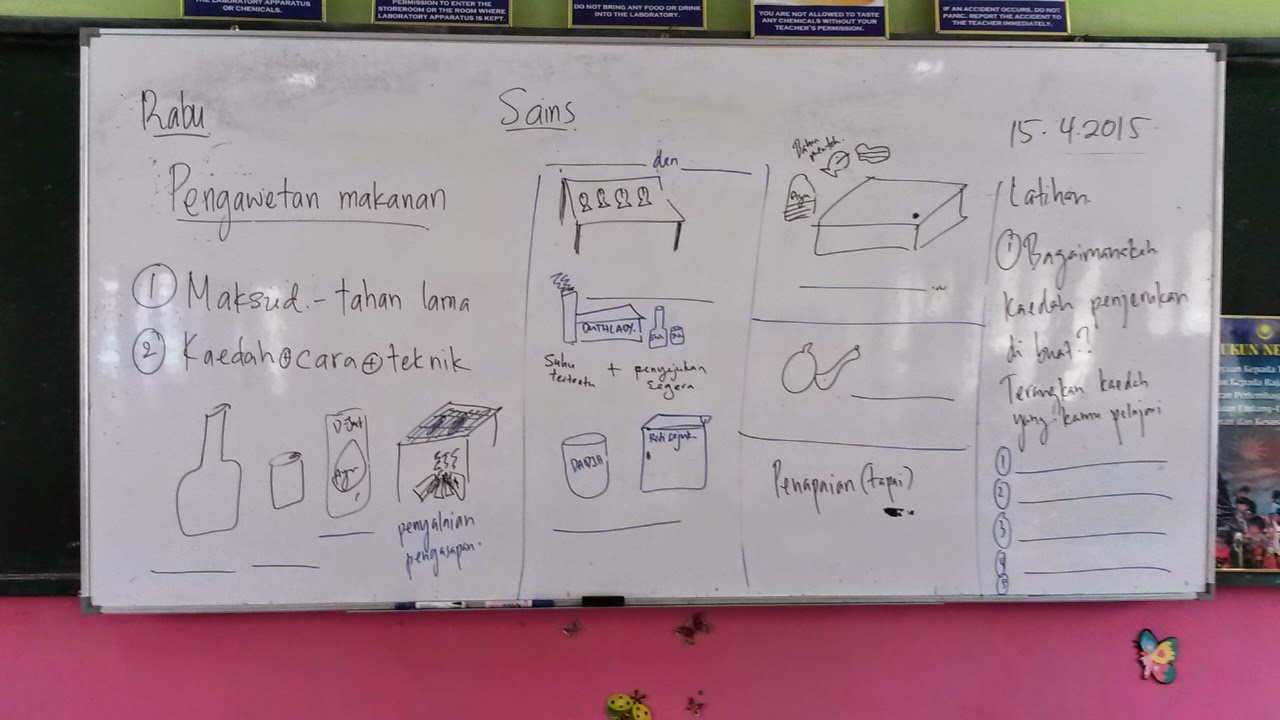 THE LABORATORY APPARATUS
OR CHEMICALS.
PERMISSION TO ENTER THE
STOREROOM OR THE ROOM WHERE
LABORATORY APPARATUS IS KEPT.
DO NOT BRING ANY FOOD OR DRINK
INTO THE LABORATORY.
YOU ARE NOT ALLOWED TO TASTE
ANY CHEMICALS WITHOUT YOUR
TEACHER'S PERMISSION.
IF AN ACCIDENT OCCURS, DO NOT
PANIC. REPORT THE ACCIDENT TO
THE TEACHER IMMEDIATELY.
Rabu
Sains
15.4.2015
Pengawetan makanan
① Maksud - tahan lama
② Kaedah⊕cara⊕teknik
penyalaian
pengasapan.
den
DUTHLADY.
Suhu
tertentu + penyejukan
segera
DADIH
Penapaian (tapai)
Latihan
① Bagaimanakah
kaedah penjerukan
di buat?
Terangkan kaedah
yang kamu pelajari
①
②
③
④
⑤
UKUN NE